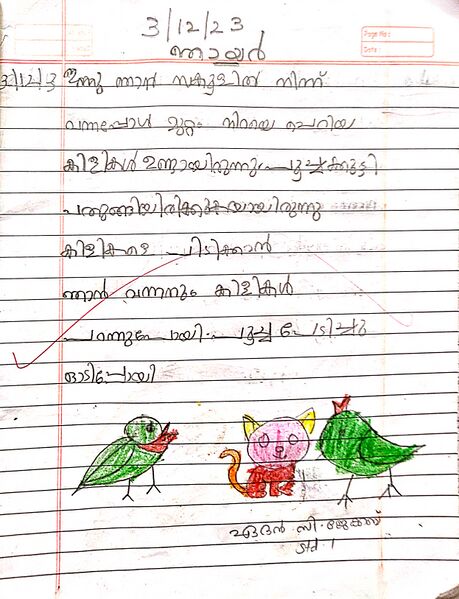 3/12/23
ഞായർ
Page No:
Date:
3/12/23 ഇന്നു ഞാൻ സ്കൂളിൽ നിന്ന്
വന്നപ്പോൾ മുറ്റം നിറയെ ചെറിയ
കിളികൾ ഉണ്ടായിരുന്നു. പൂച്ചക്കുട്ടി
പതുങ്ങിയിരിക്കുകയായിരുന്നു
കിളികളെ പിടിക്കാൻ
ഞാൻ വന്നനും കിളികൾ
പറന്നുപോയി. പൂച്ച പേടിച്ചു
ഓടിപോയി
ഏദൻ സി. ജേക്കബ്
Std 1